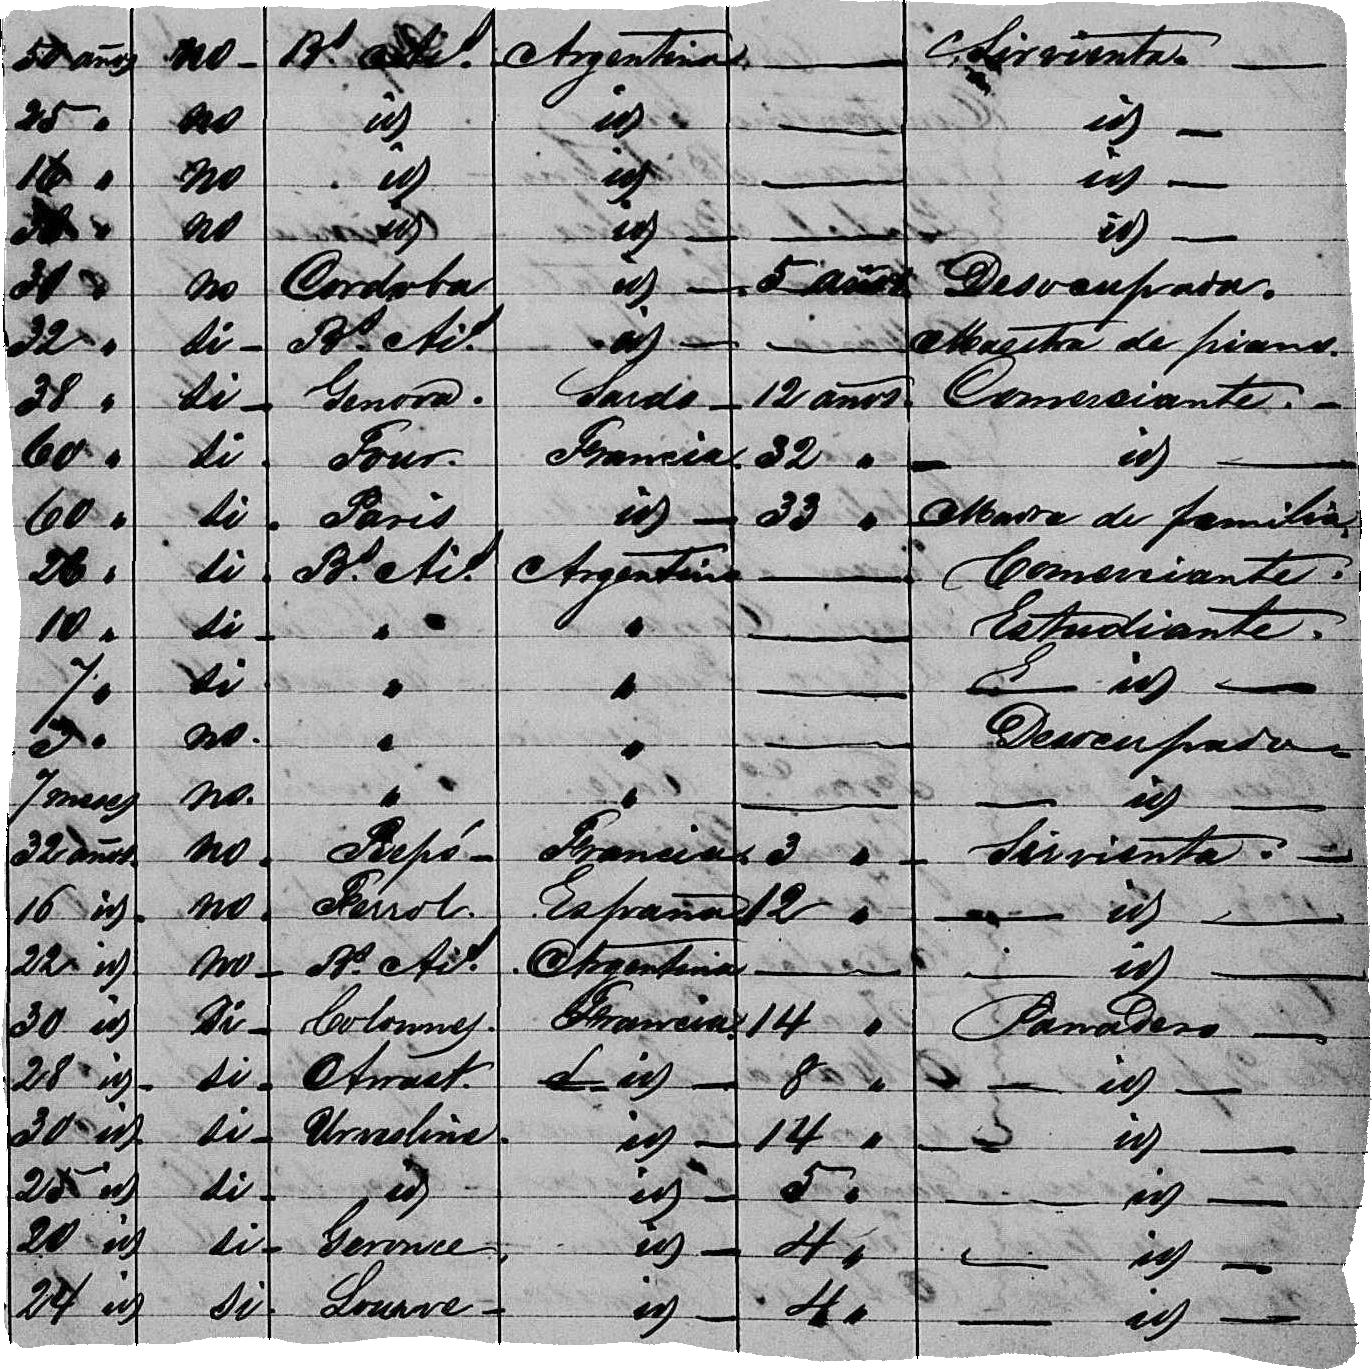 50 años no - Bs. Ais. Argentina. — Sirvienta. —
25 " no id id — id —
16 " no id id — id —
no id id — — id —
30 " no Cordoba id — 5 años Desocupada.
32 " si - Bs. Ais. id — — Maestra de piano.
38 " si - Genova. Sardo - 12 años. Comerciante. -
60 " si . Tour. Francia. 32 " - id —
60 " si . Paris id — 33 " Madre de familia.
26 " si . Bs. Ais. Argentina — Comerciante.
10 " si - " " — Estudiante.
7 " si . " " — id —
3 " no. " " — Desocupado -
7 meses no. " " — — id —
32 años. no . Francia. 3 " - Sirvienta. —
16 id. no . Ferrol. España 12 " — id —
22 id no - Bs. Ais. Argentina — — id —
30 id si - Colonnes. Francia. 14 " Panadero —
28 id - si - Arrast. id — 8 " — id —
30 id. si - id — 14 " — id —
25 id si - id id — 5 " — id —
20 id si - Geronce id — 4 " — id —
24 id si . id — 4 " — id —